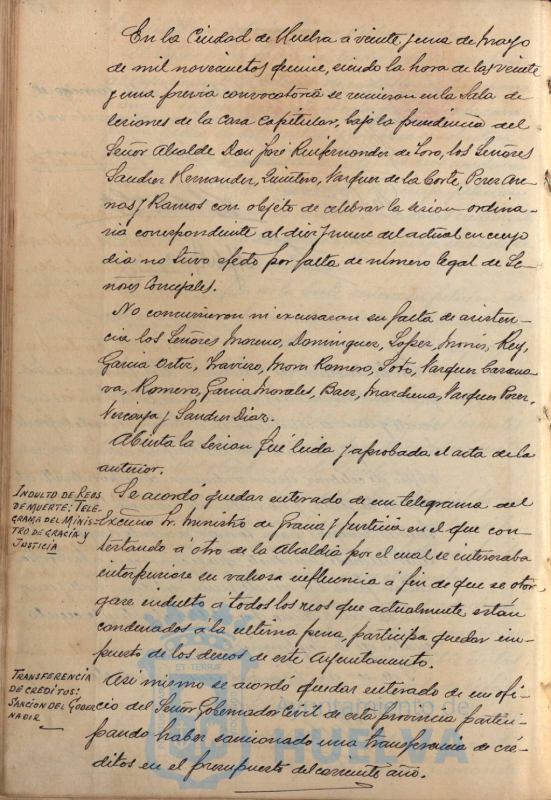 En la Ciudad de Huelva á veinte y una de mayo
de mil novecientos quince, siendo la hora de las veinte
y una previa convocatoria se reunieron en la Sala de
sesiones de la Casa Capitular, bajo la presidencia del
Señor Alcalde Don José Ruifernandez de Toro, los Señores
Sanchez Hernandez, Quintero, Vazquez de la Corte, Perez Are-
nas y Ramos con objeto de celebrar la sesion ordina-
ria correspondiente al diez y nueve del actual en cuyo
dia no tuvo efecto por falta de número legal de Se-
ñores Concejales.
No concurrieron ni excusaron su falta de asisten-
cia los Señores Moreno, Dominguez, Lopez, Monis, Rey,
Garcia Ortiz, Traviero, Mora Romero, Soto, Vazquez Casano-
va, Romero, Garcia Morales, Baez, Marchena, Vazquez Perez
Vizcaya y Sanchez Diaz.
Abierta la sesion fué leida y aprobada el acta de la
anterior.
INDULTO DE REOS
DE MUERTE: TELE-
GRAMA DEL MINIS-
TRO DE GRACIA Y
JUSTICIA
Se acordó quedar enterado de un telegrama del
Excmo Sr. Ministro de Gracia y Justicia en el que con-
testando á otro de la Alcaldia por el cual se interesaba
interpusiere su valiosa influencia á fin de que se otor-
gase indulto á todos los reos que actualmente están
condenados á la ultima pena, participa quedar im-
puesto de los deseos de este Ayuntamiento.
TRANSFERENCIA
DE CRÉDITOS:
SANCION DEL GOBER-
NADOR
Asi mismo se acordó quedar enterado de un ofi-
cio del Señor Gobernador Civil de esta provincia partici-
pando haber sancionado una transferencia de cré-
ditos en el presupuesto del corriente año.
ET TERRAE
Ayuntamiento de
HUELVA